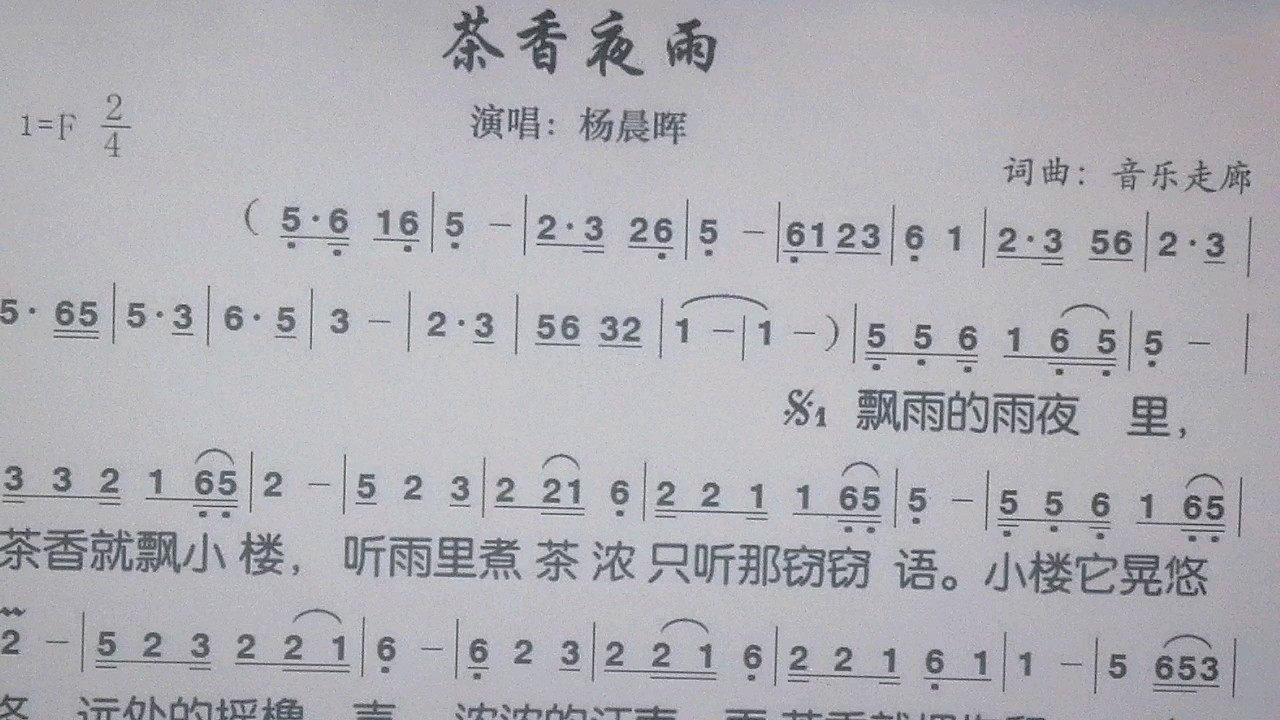 茶香夜雨
演唱：杨晨晖
1=F 2/4
词曲：音乐走廊
( 5·6 16 | 5 － | 2·3 26 | 5 － | 6123 | 6 1 | 2·3 56 | 2·3 |
5· 65 | 5·3 | 6·5 | 3 － | 2·3 | 56 32 | 1 － | 1 －) | 5 5 6 1 6 5 | 5 － |
𝄋1 飘雨的雨夜 里，
3 3 2 1 65 | 2 － | 5 2 3 | 2 21 6 | 2 2 1 1 65 | 5 － | 5 5 6 1 65 |
茶香就飘小 楼， 听雨里煮 茶 浓 只听那窃窃 语。小楼它晃悠
2 － | 5 2 3 2 2 1 | 6 － | 6 2 3 | 2 2 1 6 | 2 2 1 6 1 | 1 － | 5 653 |
远处的摇橹 声